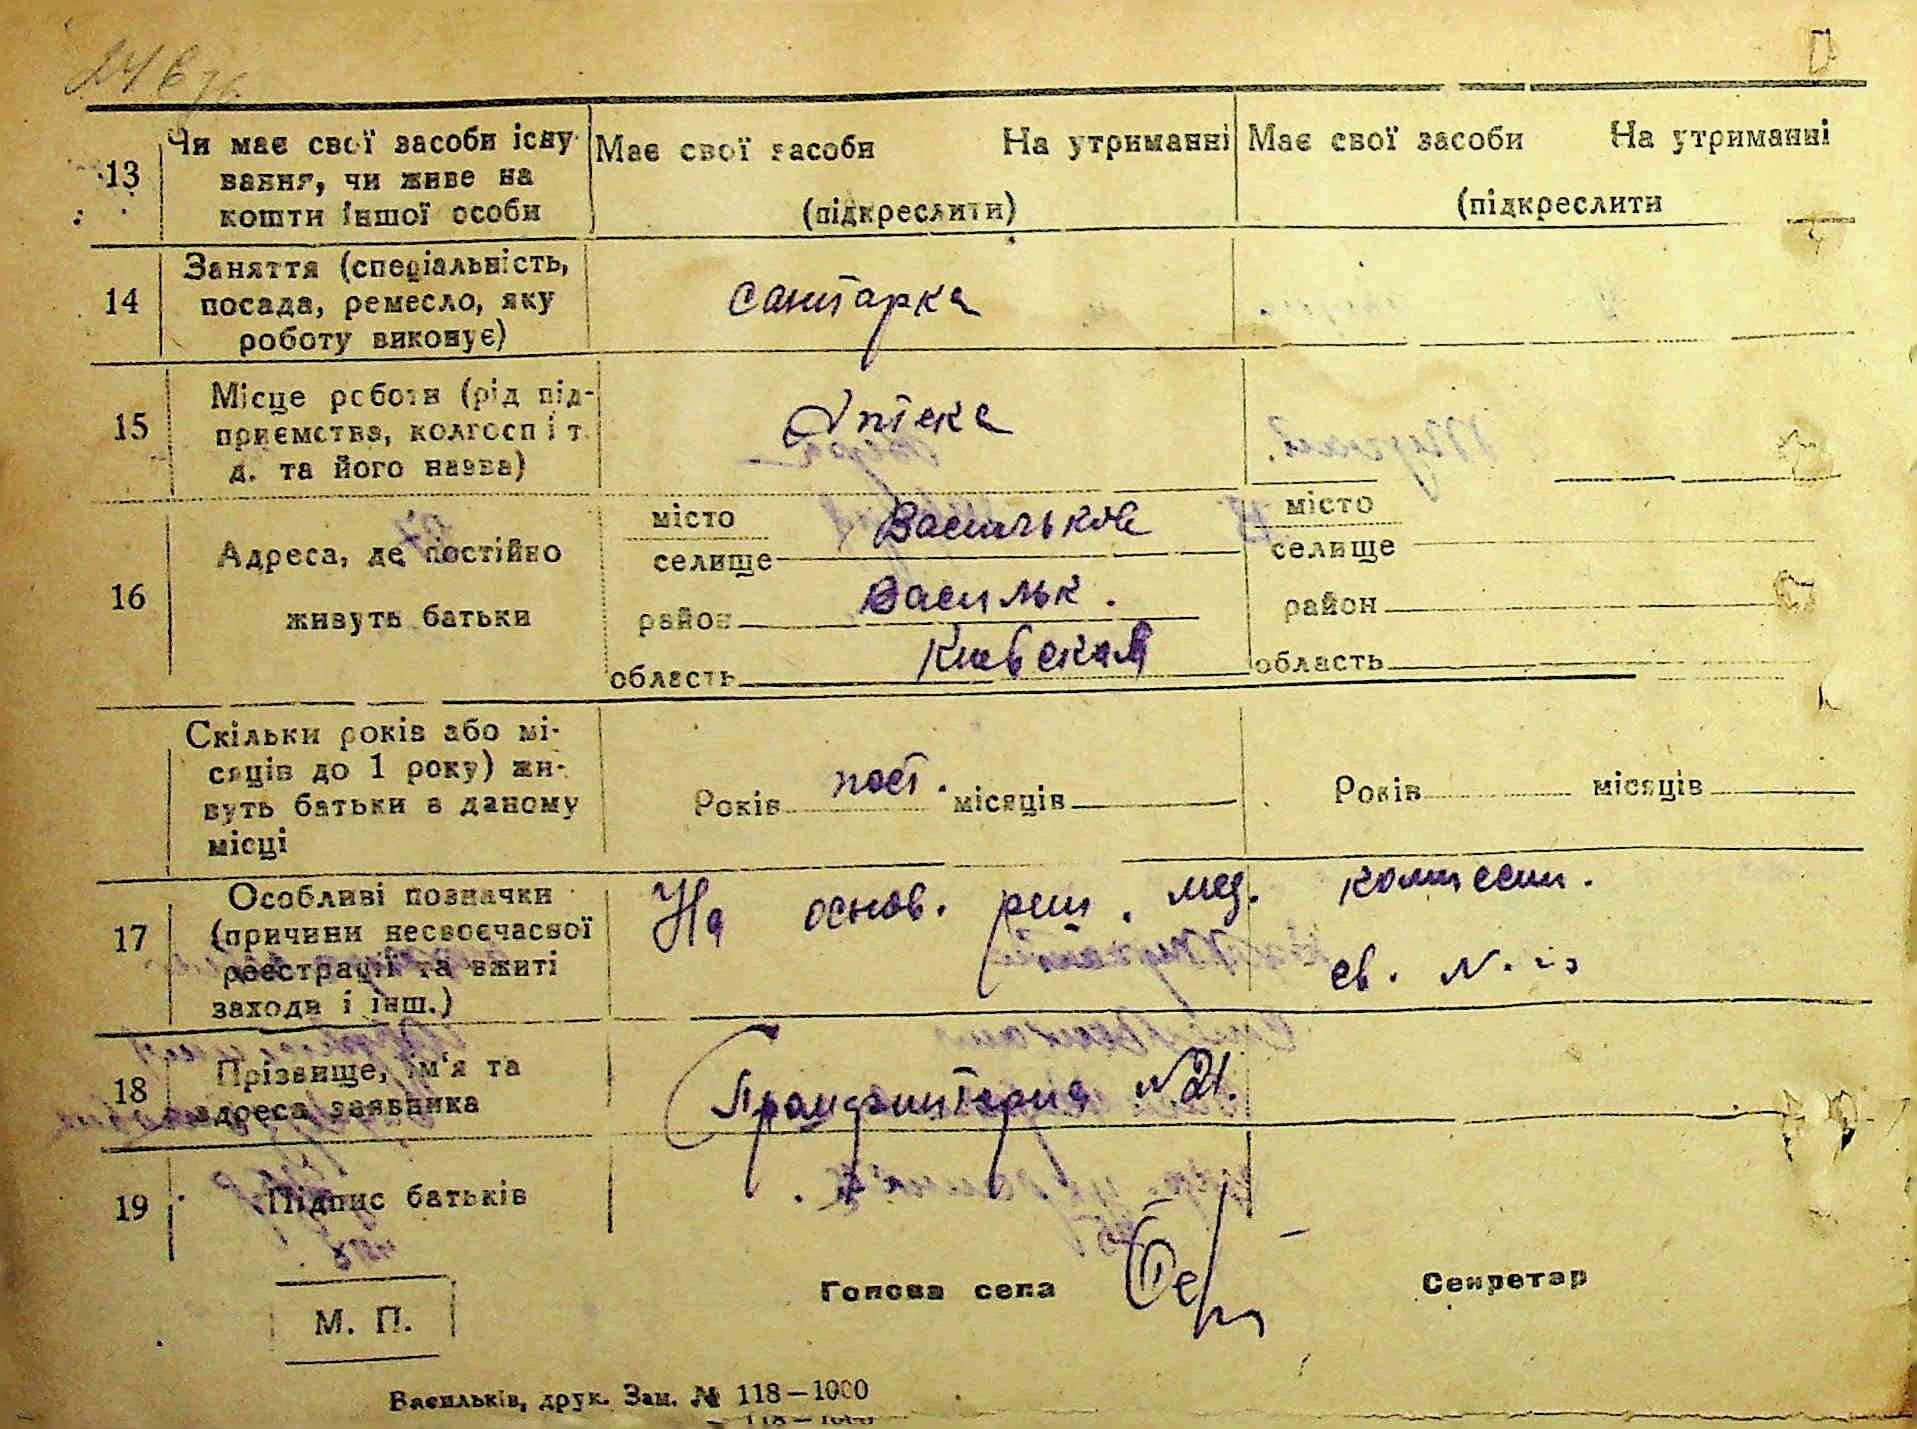 13
Чи має свої засоби існу
вання, чи живе на
кошти іншої особи
Має свої засоби На утриманні
(підкреслити)
Має свої засоби На утриманні
(підкреслити
14
Заняття (спеціальність,
посада, ремесло, яку
роботу виконує)
санітарка
15
Місце роботи (рід під-
приємства, колгосп і т.
д. та його назва)
Аптека
16
Адреса, де постійно
живуть батьки
місто
селище
Васильков
район Васильк.
область Киевская
місто
селище
район
область
Скільки років або мі-
сяців до 1 року) жи-
вуть батьки в даному
місці
Років пост. місяців
Років місяців
17
Особливі позначки
(причини несвоєчасної
реєстрації та вжиті
заходи і інш.)
На основ. реш. мед. комиссии.
св. N.
18
Прізвище, ім'я та
адреса заявника
N 21.
19
Підпис батьків
М. П.
Голова села
Секретар
Васильків, друк. Зам. № 118—1000
118—1000